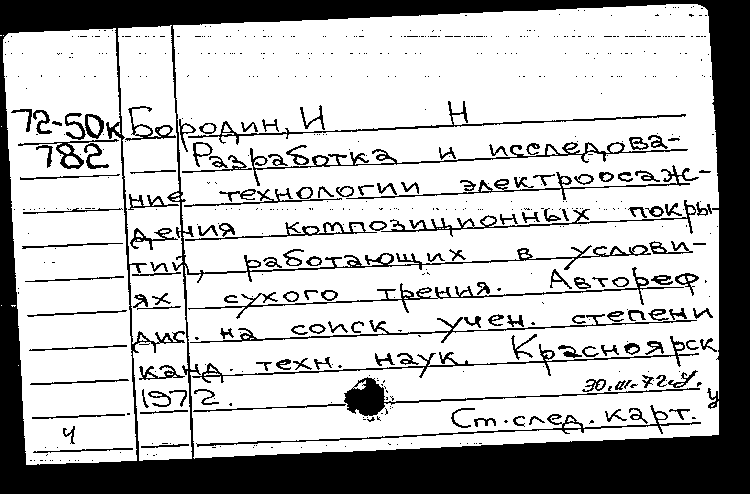 72-50к Бородин, И Н
782 Разработка и исследова-
ние технологии электроосаж-
дения композиционных покры-
тий, работающих в услови-
ях сухого трения. Автореф.
дис. на соиск. учен. степени
канд. техн. наук. Красноярск,
1972.
30.III.72.У.
Ст. след. карт. у
ч